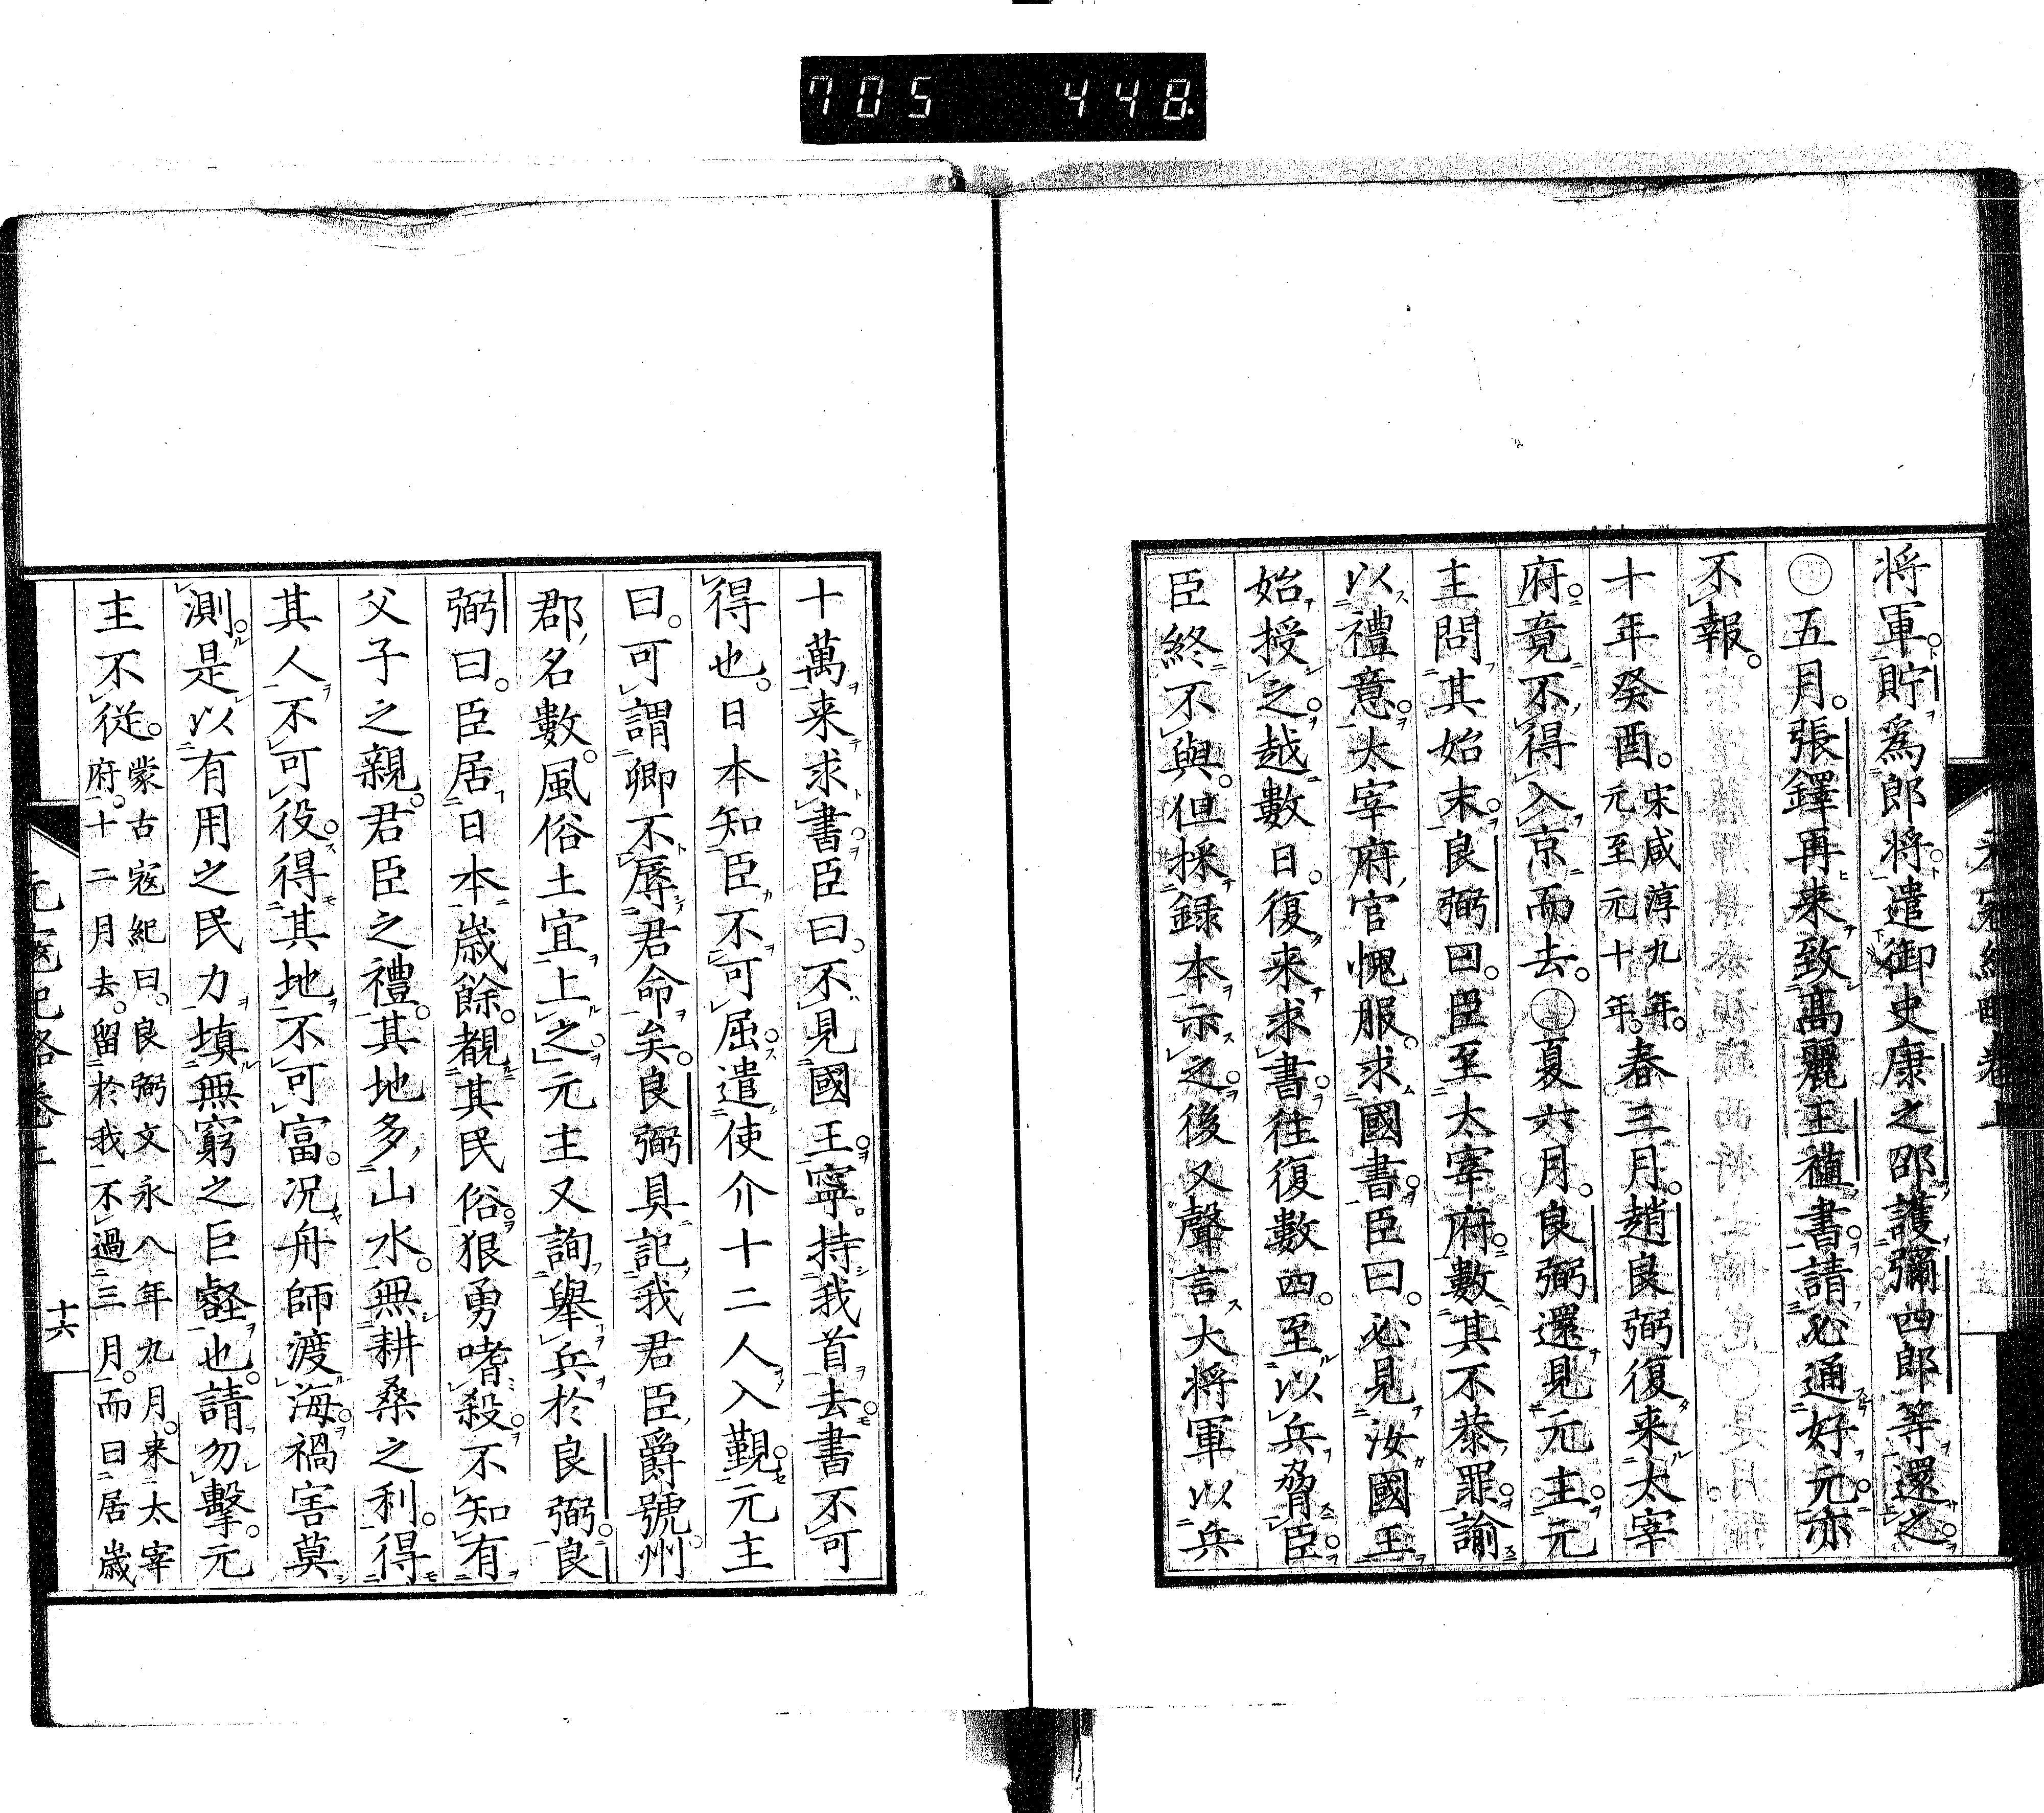 705 448
将軍貯爲郎将遣御史康之邵護彌四郎等還之
○五月張鐸再来致高麗王禃書請必通好元亦
不報
十年癸酉宋咸淳九年元至元十年春三月趙良弼復来太宰
府竟不得入京而去○夏六月良弼還見元主元
主問其始末良弼曰臣至太宰府數其不恭罪諭
以禮意太宰府官愧服求國書臣曰必見汝國王
始授之越數日復来求書往復數四至以兵脅臣
臣終不與但採録本示之後又聲言大将軍以兵
十萬来求書臣曰不見國王寧持我首去書不可
得也日本知臣不可屈遣使介十二人入覲元主
曰可謂卿不辱君命矣良弼具記我君臣爵號州
郡名數風俗土宜上之元主又詢舉兵於良弼良
弼曰臣居日本歳餘覩其民俗狠勇嗜殺不知有
父子之親君臣之禮其地多山水無耕桑之利得
其人不可役得其地不可富况舟師渡海禍害莫
測是以有用之民力填無窮之巨壑也請勿擊元
主不從蒙古寇紀曰良弼文永八年九月来太宰府十二月去留於我不過三月而曰居歳
元寇紀略卷上 十六